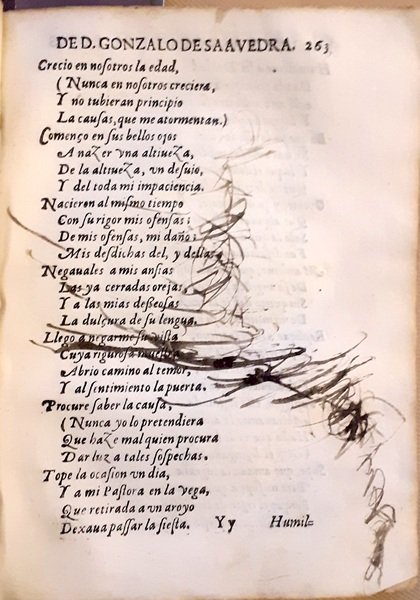 DE D. GONZALO DE SAAVEDRA. 263
Crecio en nosotros la edad,
(Nunca en nosotros creciera,
Y no tubieran principio
La causas, que me atormentan.)
Començo en sus bellos ojos
A nazer vna altiueza,
De la altiueza, vn desuio,
Y del toda mi impaciencia.
Nacieron al mismo tiempo
Con su rigor mis ofensas;
De mis ofensas, mi daño;
Mis desdichas del, y dellas
Negauales a mis ansias
Las ya cerradas orejas,
Y a las mias desseosas
La dulçura de su lengua.
Llego a negarme su vista
Cuya rigurosa
Abrio camino al temor,
Y al sentimiento la puerta.
Procure saber la causa,
(Nunca yo lo pretendiera
Que haze mal quien procura
Dar luz a tales sospechas.
Tope la ocasion vn dia,
Y a mi Pastora en la vega,
Que retirada a vn arroyo
Dexaua passar la siesta.
Yy Humil=